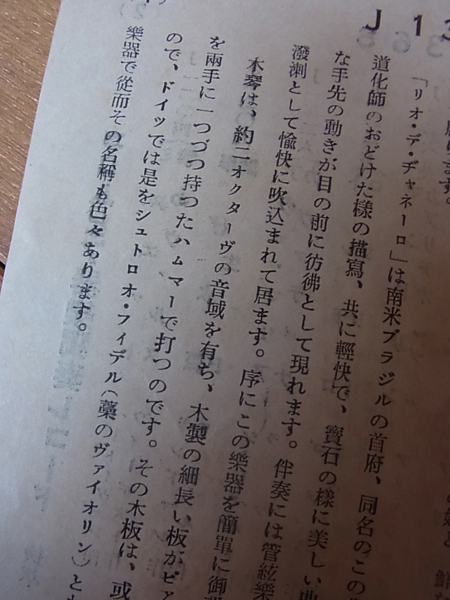 J 13
居ります。
「リオ・デ・ヂャネーロ」は南米ブラジルの首府、同名のこの
道化師のおどけた様の描寫、共に輕快で、寳石の樣に美しい
な手先の動きが目の前に彷彿として現れます。伴奏には管絃樂
潑溂として愉快に吹込まれて居ます。序にこの樂器を簡單に御
木琴は、約二オクターヴの音域を有ち、木製の細長い板がピ
を兩手に一つづつ持つたハムマーで打つのです。その木板は、或
ので、ドイツでは是をシュトロオ・フィデル(藁のヴァイオリン)と
樂器で從而その名稱も色々あります。